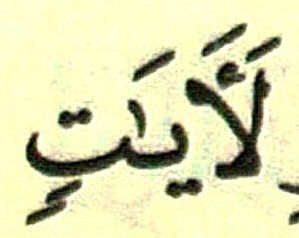 لَأَيَٰتٍ